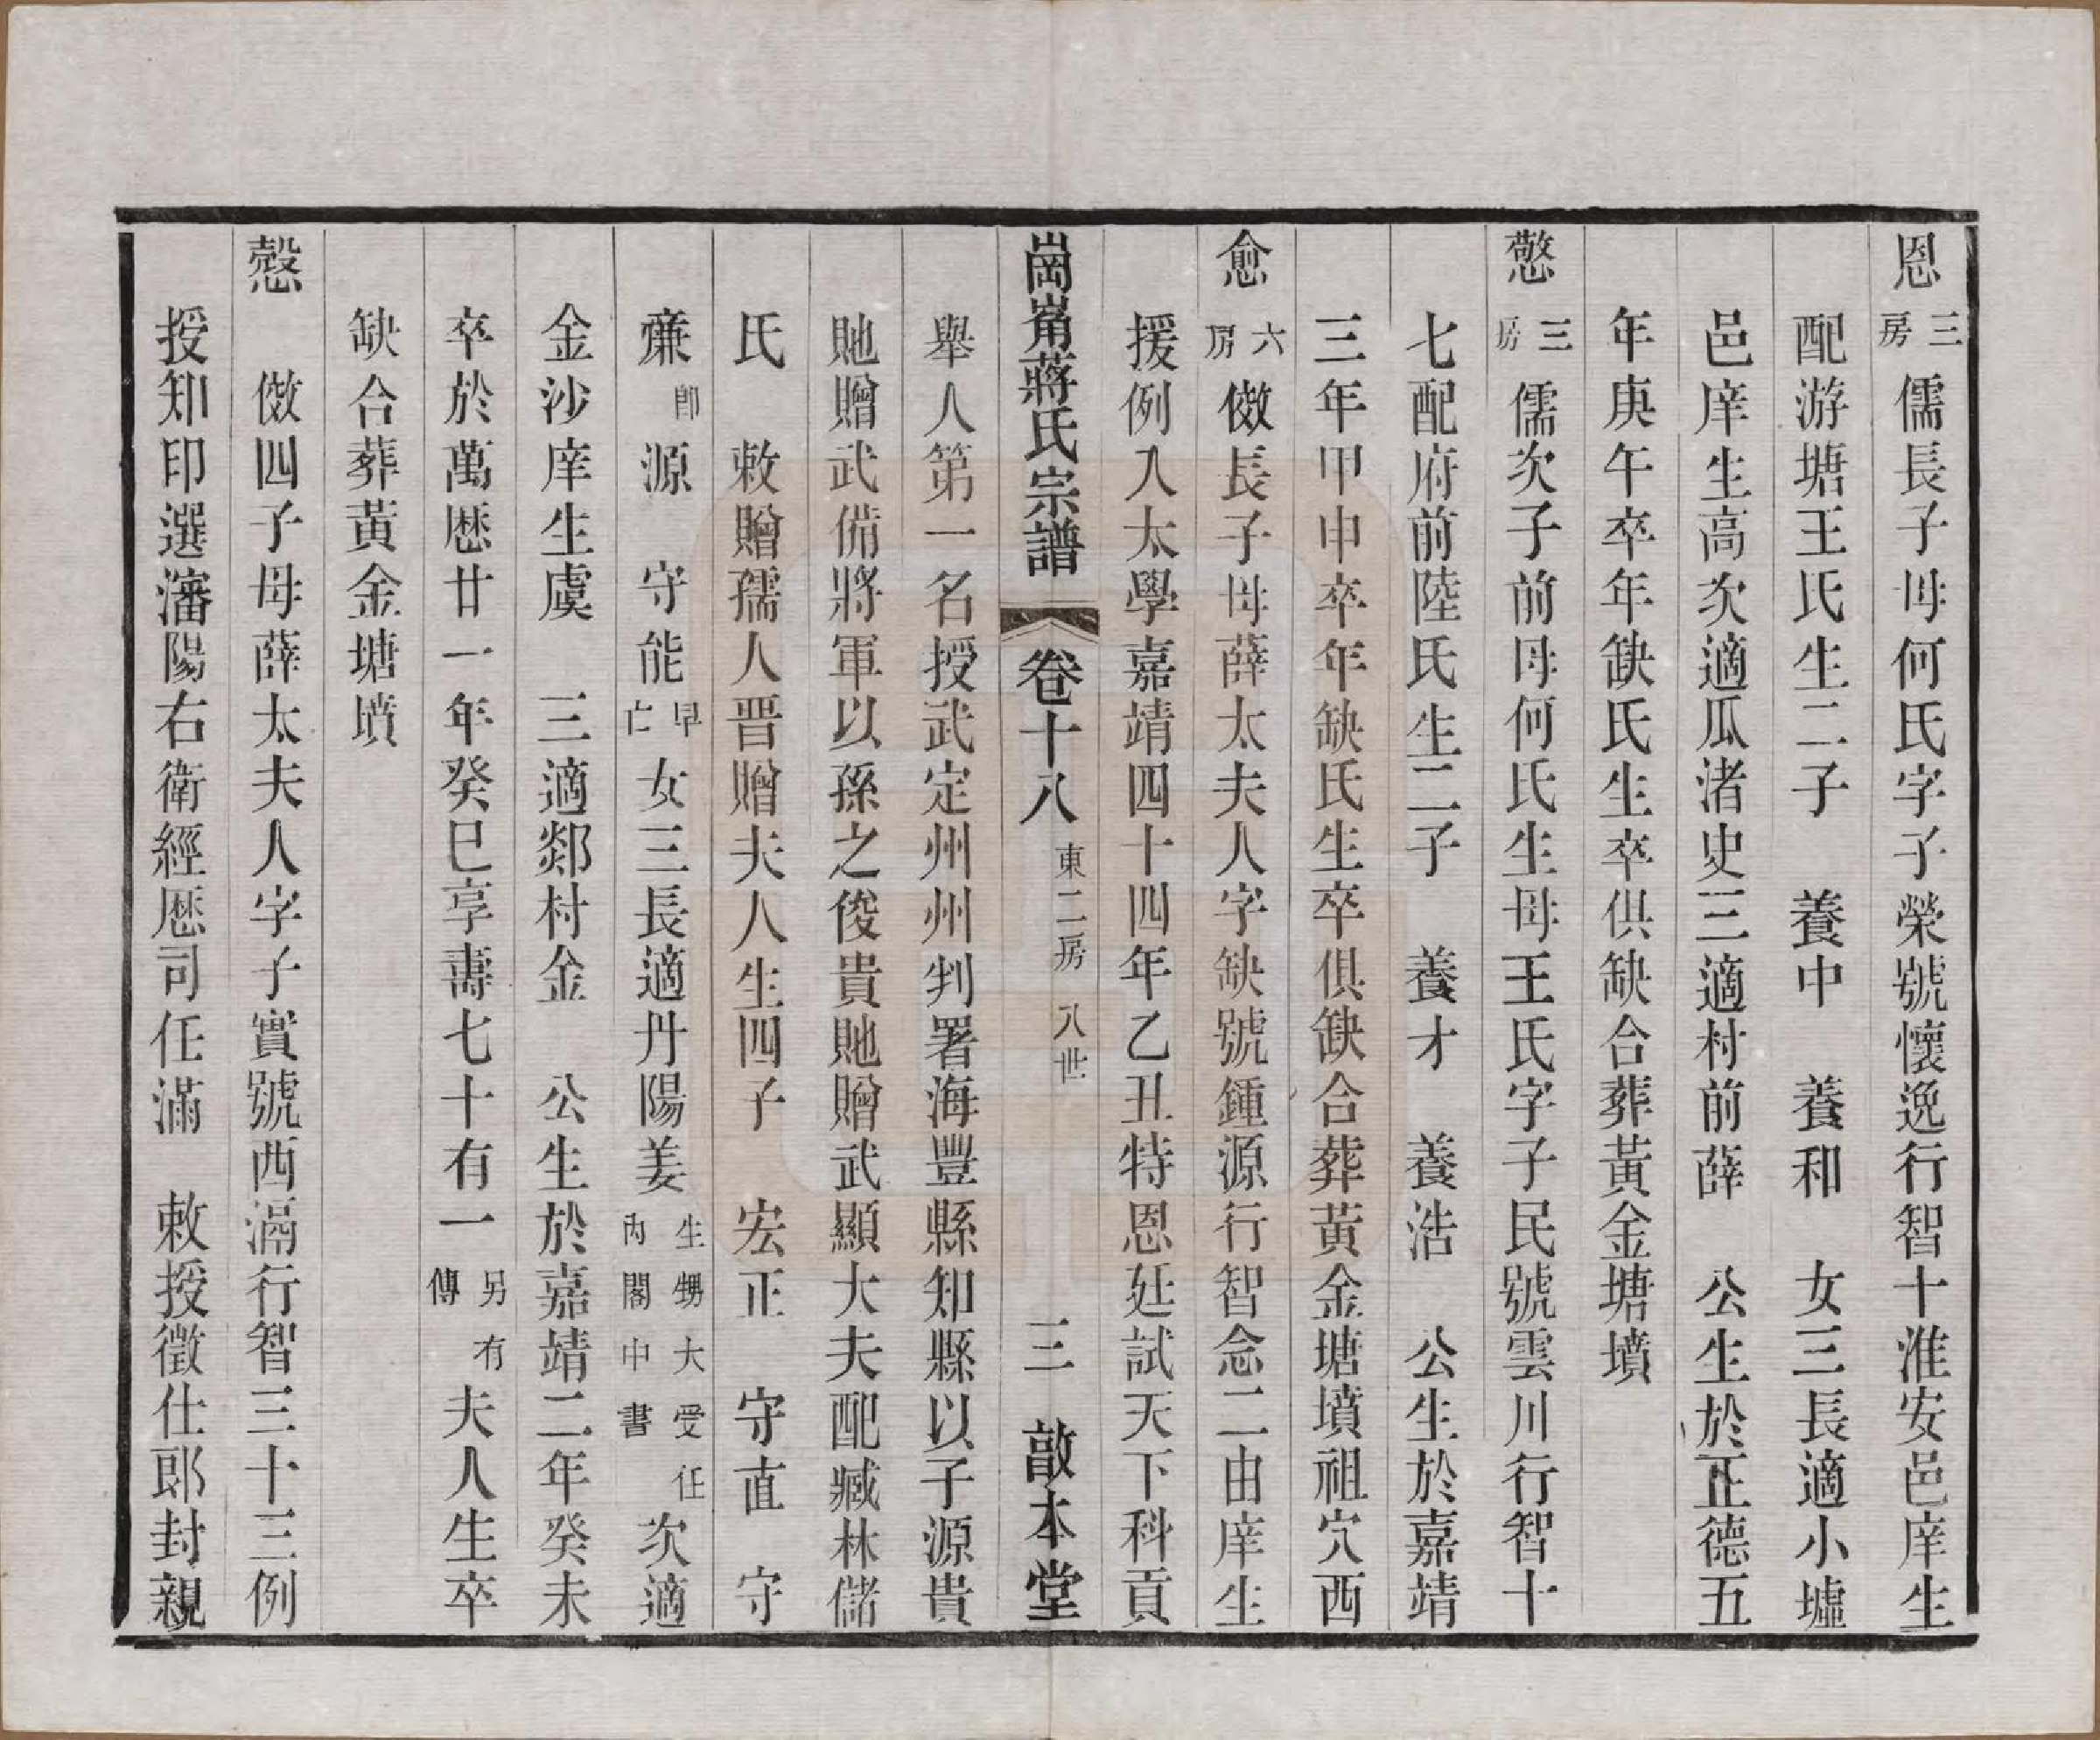 恩 三房 儒長子母何氏字子榮號懷逸行智十淮安邑庠生
配游塘王氏生二子 養中 養和 女三長適小墟
邑庠生高次適瓜渚史三適村前薛 公生於正德五
年庚午卒年缺氏生卒俱缺合葬黃金塘墳
慜 三房 儒次子前母何氏生母王氏字子民號雲川行智十
七配府前陸氏生二子 養才 養浩 公生於嘉靖
三年甲申卒年缺氏生卒俱缺合葬黃金塘墳祖穴西
愈 六房 儆長子母薛太夫人字缺號鍾源行智念二由庠生
援例入太學嘉靖四十四年乙丑特恩廷試天下科貢
崗崙蔣氏宗譜 卷十八 東二房 八世 三 敦本堂
舉人第一名授武定州州判署海豐縣知縣以子源貴
貤贈武備將軍以孫之俊貴貤贈武顯大夫配臧林儲
氏 敕贈孺人晋贈夫人生四子 宏正 守直 守
亷 卽源 守能 早亡 女三長適丹陽姜 生甥大受任內閣中書 次適
金沙庠生虞 三適鄒村金 公生於嘉靖二年癸未
卒於萬厯廿一年癸巳享壽七十有一 另有傳 夫人生卒
缺合葬黃金塘墳
愨 儆四子母薛太夫人字子實號西滆行智三十三例
授知印選瀋陽右衛經厯司任滿 敕授徵仕郎封親